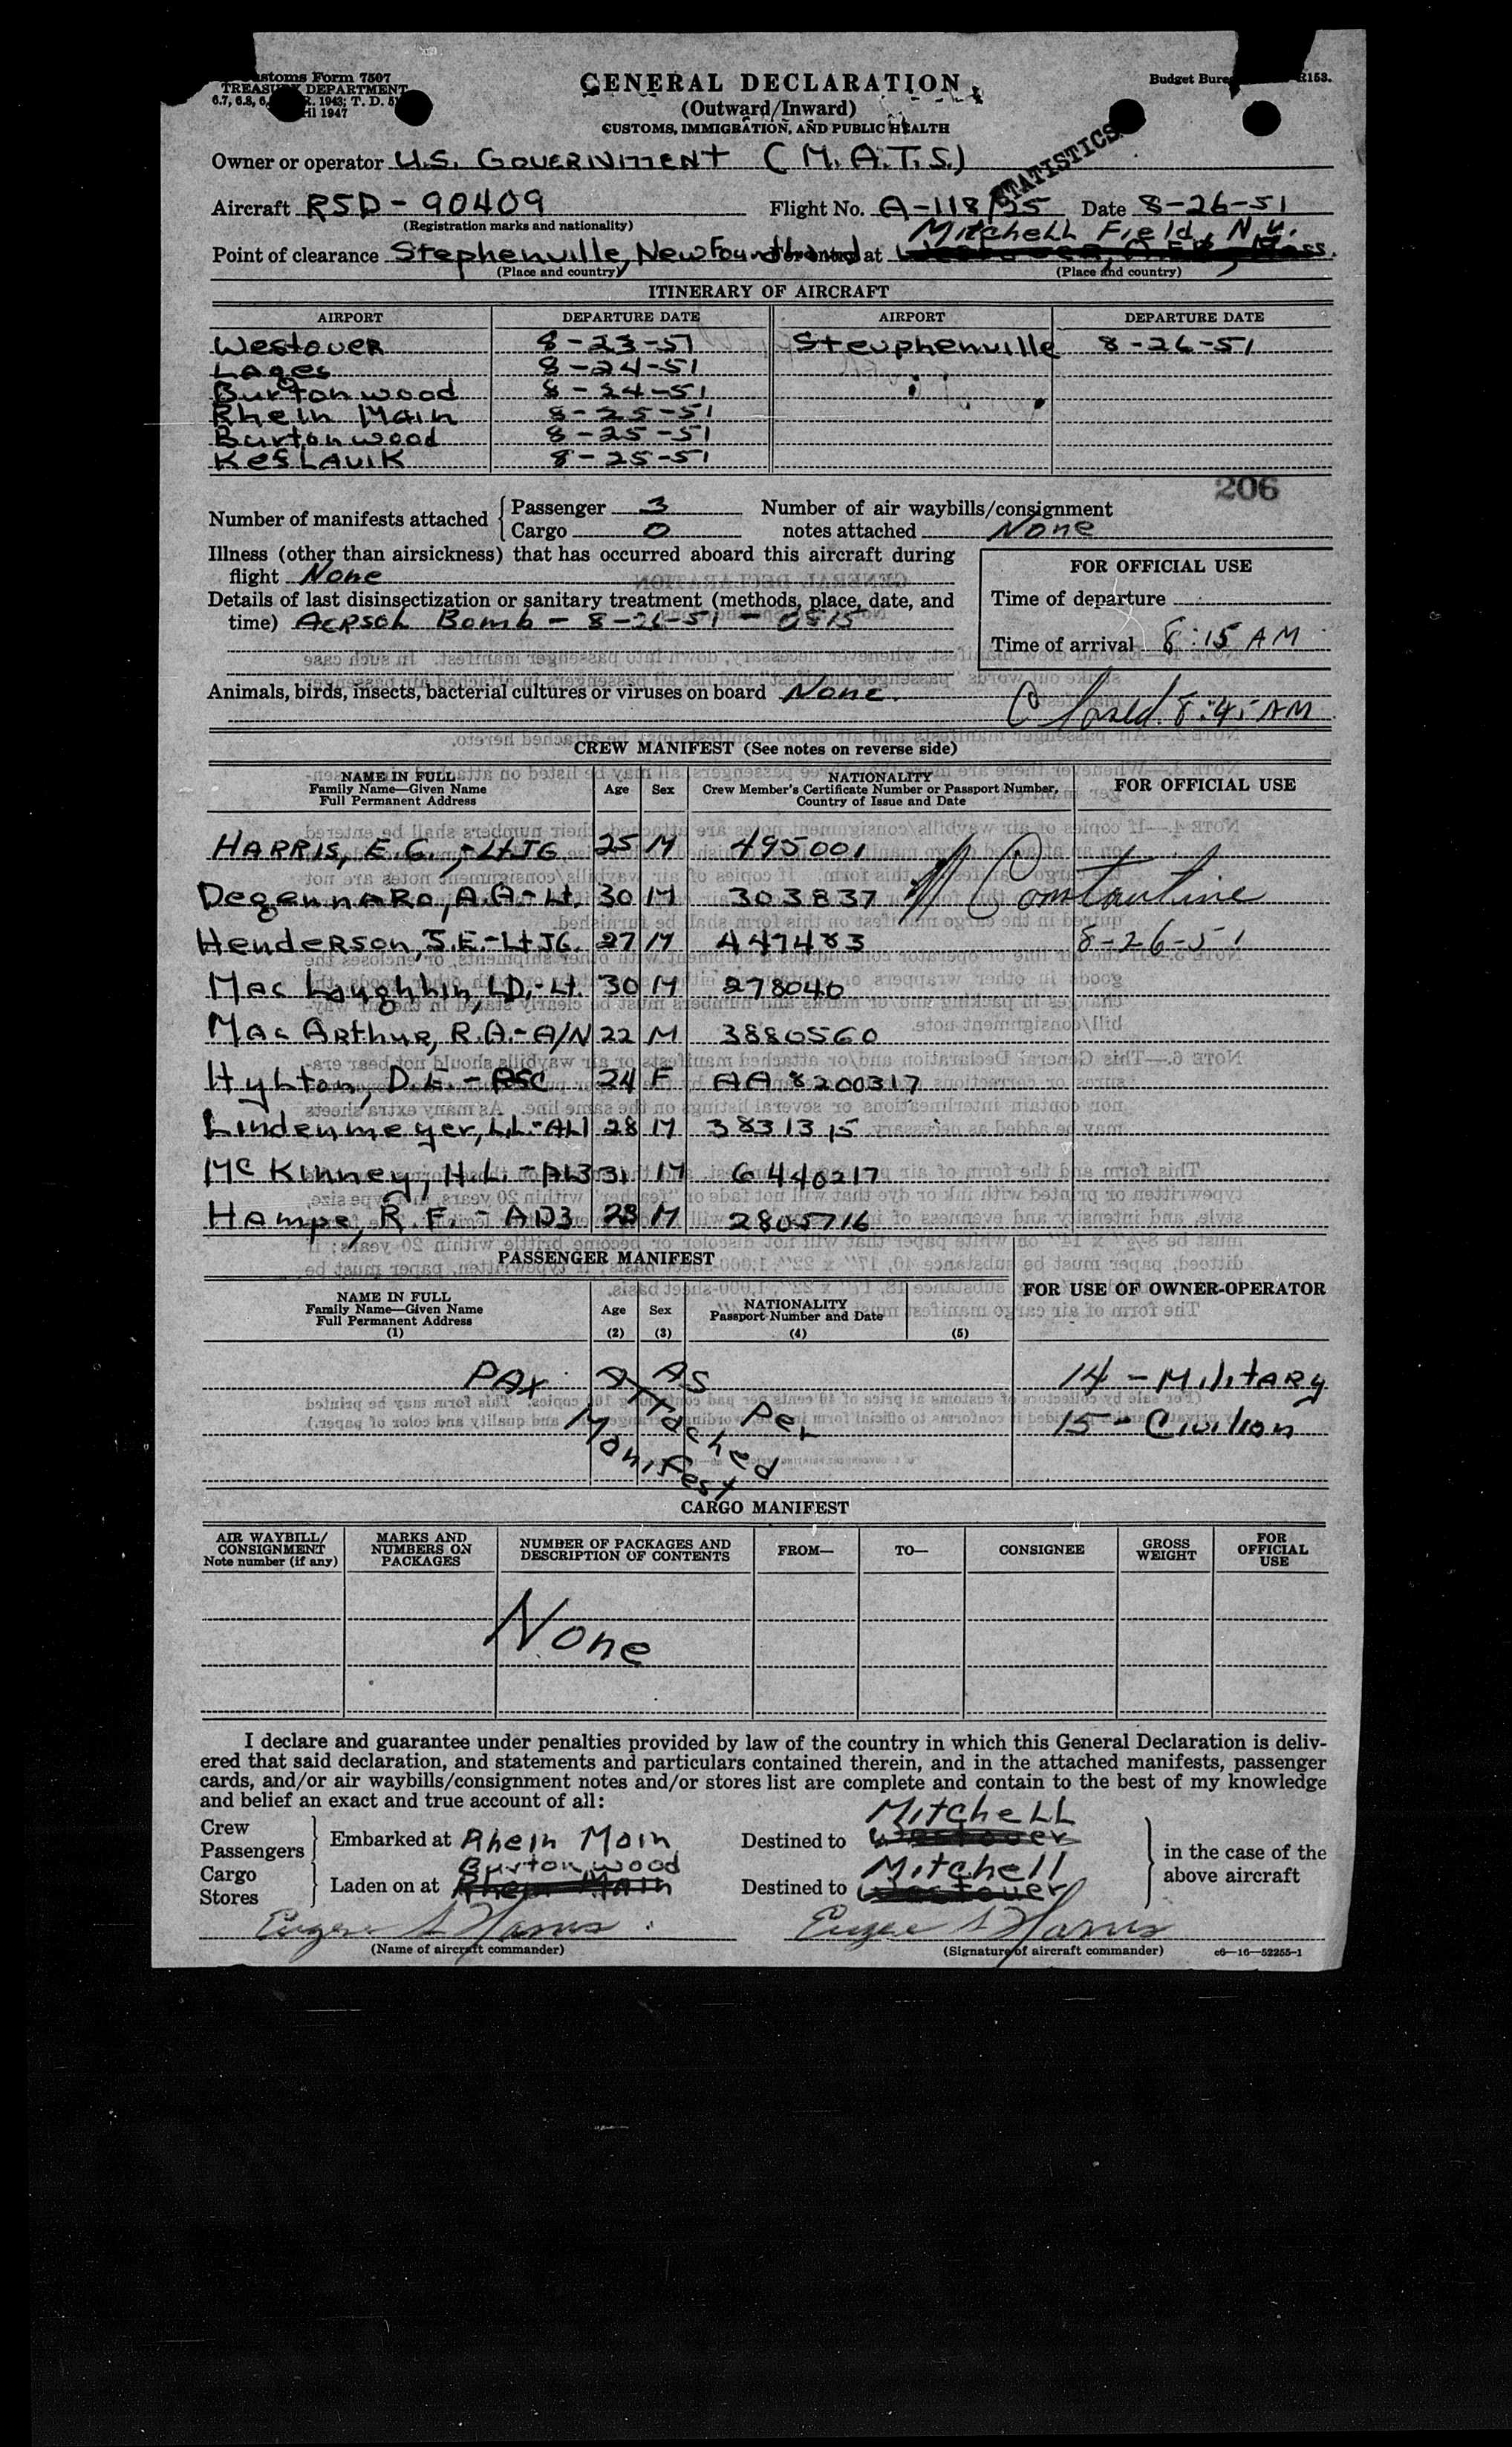 Customs Form 7507
TREASURY DEPARTMENT
6.7, 6.8, 6. R. 1943; T. D. 5
il 1947
GENERAL DECLARATION
(Outward/Inward)
CUSTOMS, IMMIGRATION, AND PUBLIC HEALTH
Budget Bure R153.
STATISTICS
Owner or operator U.S. GOVERNMENT (M.A.T.S.)
Aircraft R5D-90409 Flight No. A-118/25 Date 8-26-51
(Registration marks and nationality)
Mitchell Field, N.Y.
Point of clearance Stephenville, Newfoundland at
(Place and country) (Place and country)
ITINERARY OF AIRCRAFT
AIRPORT DEPARTURE DATE AIRPORT DEPARTURE DATE
Westover 8-23-51 Steuphenville 8-26-51
Lages 8-24-51
Burtonwood 8-24-51
Rhein Main 8-25-51
Burtonwood 8-25-51
Keflavik 8-25-51
206
Number of manifests attached Passenger 3 Number of air waybills/consignment
Cargo 0 notes attached None
Illness (other than airsickness) that has occurred aboard this aircraft during
flight None
FOR OFFICIAL USE
Details of last disinsectization or sanitary treatment (methods, place, date, and
time) Aersol Bomb - 8-26-51 - 0515
Time of departure
Time of arrival 8:15 AM
Animals, birds, insects, bacterial cultures or viruses on board None.
Closed 8:45 AM
CREW MANIFEST (See notes on reverse side)
NAME IN FULL
Family Name—Given Name
Full Permanent Address
Age Sex
NATIONALITY
Crew Member's Certificate Number or Passport Number,
Country of Issue and Date
FOR OFFICIAL USE
HARRIS, E.G.,-LtJG 25 M 495001
DegennaRo, A.A-Lt. 30 M 303837 Constantine
Henderson, J.E.-LtJG. 27 M A447483 8-26-51
MacLaughlin, L.D.-Lt. 30 M 278040
MacArthur, R.A.-A/N 22 M 3880560
Hylton, D.E.- 24 F AA 8200317
Lindenmeyer, L.L.-AL1 28 M 3831315
McKinney, H.L.-AL3 31 M 6440217
Hampe, R.F.-AD3 28 M 2805716
PASSENGER MANIFEST
NAME IN FULL
Family Name—Given Name
Full Permanent Address
(1)
Age
(2)
Sex
(3)
NATIONALITY
Passport Number and Date
(4) (5)
FOR USE OF OWNER-OPERATOR
PAX AS Per
Attached
Manifest
14 - Military
15 - Civilian
CARGO MANIFEST
AIR WAYBILL/
CONSIGNMENT
Note number (if any)
MARKS AND
NUMBERS ON
PACKAGES
NUMBER OF PACKAGES AND
DESCRIPTION OF CONTENTS
FROM— TO— CONSIGNEE
GROSS
WEIGHT
FOR
OFFICIAL
USE
None
I declare and guarantee under penalties provided by law of the country in which this General Declaration is deliv-
ered that said declaration, and statements and particulars contained therein, and in the attached manifests, passenger
cards, and/or air waybills/consignment notes and/or stores list are complete and contain to the best of my knowledge
and belief an exact and true account of all:
Crew
Passengers
Cargo
Stores
Embarked at Rhein Main
Destined to Mitchell Westover
Laden on at Burtonwood Rhein Main
Destined to Mitchell Westover
in the case of the
above aircraft
Eugene Harris Eugene Harris
(Name of aircraft commander) (Signature of aircraft commander) c6—16—52255-1